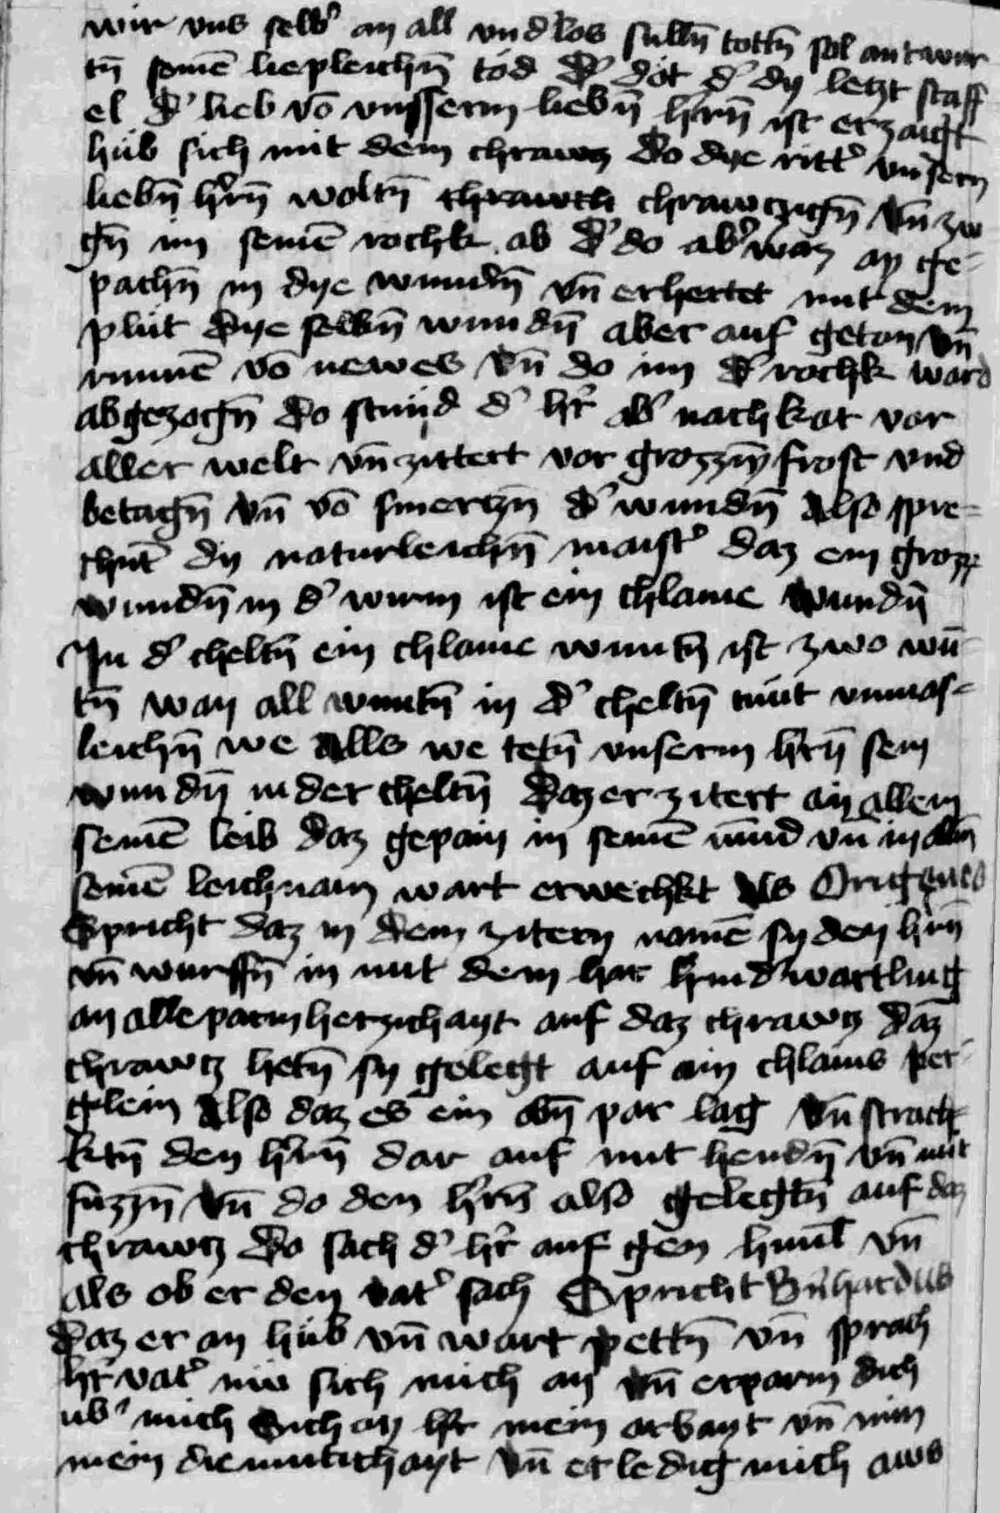 wir vns selb' an all vnd los sullñ tottñ sol antwur
tñ seinē liepleichñ tod D' dot d' dy letzt staff
el d' lieb vō vnsserm liebñ hrñ ist erzaigt
hub sich mit dem chrawcz Do dye ritt' vnsern
liebñ hrñ woltñ chrawczigñ vñ zu
gñ im seinē rockh ab D' do ab' waz an ge-
pachñ in dye wundñ vñ erhertet mit dem
plut Dye selbñ wundñ aber auf getan vñ
runnē vō newes vñ do im d' rockh ward
abgezogñ Do stund d' hr̄ als nachkot vor
aller welt vñ zittert vor grozzñ frost vnd
betagñ vñ vō smertzñ d' wundñ Also spre-
chnt dy naturleichñ maist' daz ein groz
wundñ in d' wirm ist ein chlaine wundñ
In d' cheltñ ein chlaine wuntñ ist zwo wū
tñ wan all wuntñ in d' cheltñ tunt vnmas-
leichñ we Alls we tetñ vnserm hrñ sein
wundñ in der cheltñ Daz er zitert an allem
seinē leib Daz gepain in seinē mūd vn in alln
seinē leichnam wart erwechkt Als Origenes
Spricht daz in dem zitern namē sy den hrñ
vñ wurffñ in mit dem har hind'wartling
an alle parmherzichayt auf daz chrawcz Daz
chrawcz hetñ sy gelegt auf ain chlains per-
glein Also daz es ein abñ par lag vñ strach
ktñ den hrñ dar auf mit hendñ vñ mit
fuzzñ Vñ do den hrñ also gelegtñ auf daz
chrawcz Do sach d' hr̄ auf gen himl vñ
als ob er den vat' sach Spricht B'nhardus
Daz er an hub vñ wart pettñ vñ sprach
hr̄ vat' nu sich mich an vñ erparm dich
ub' mich Sich an hr̄ mein arbayt vñ mein
mein diemutichayt vñ erledig mich aws